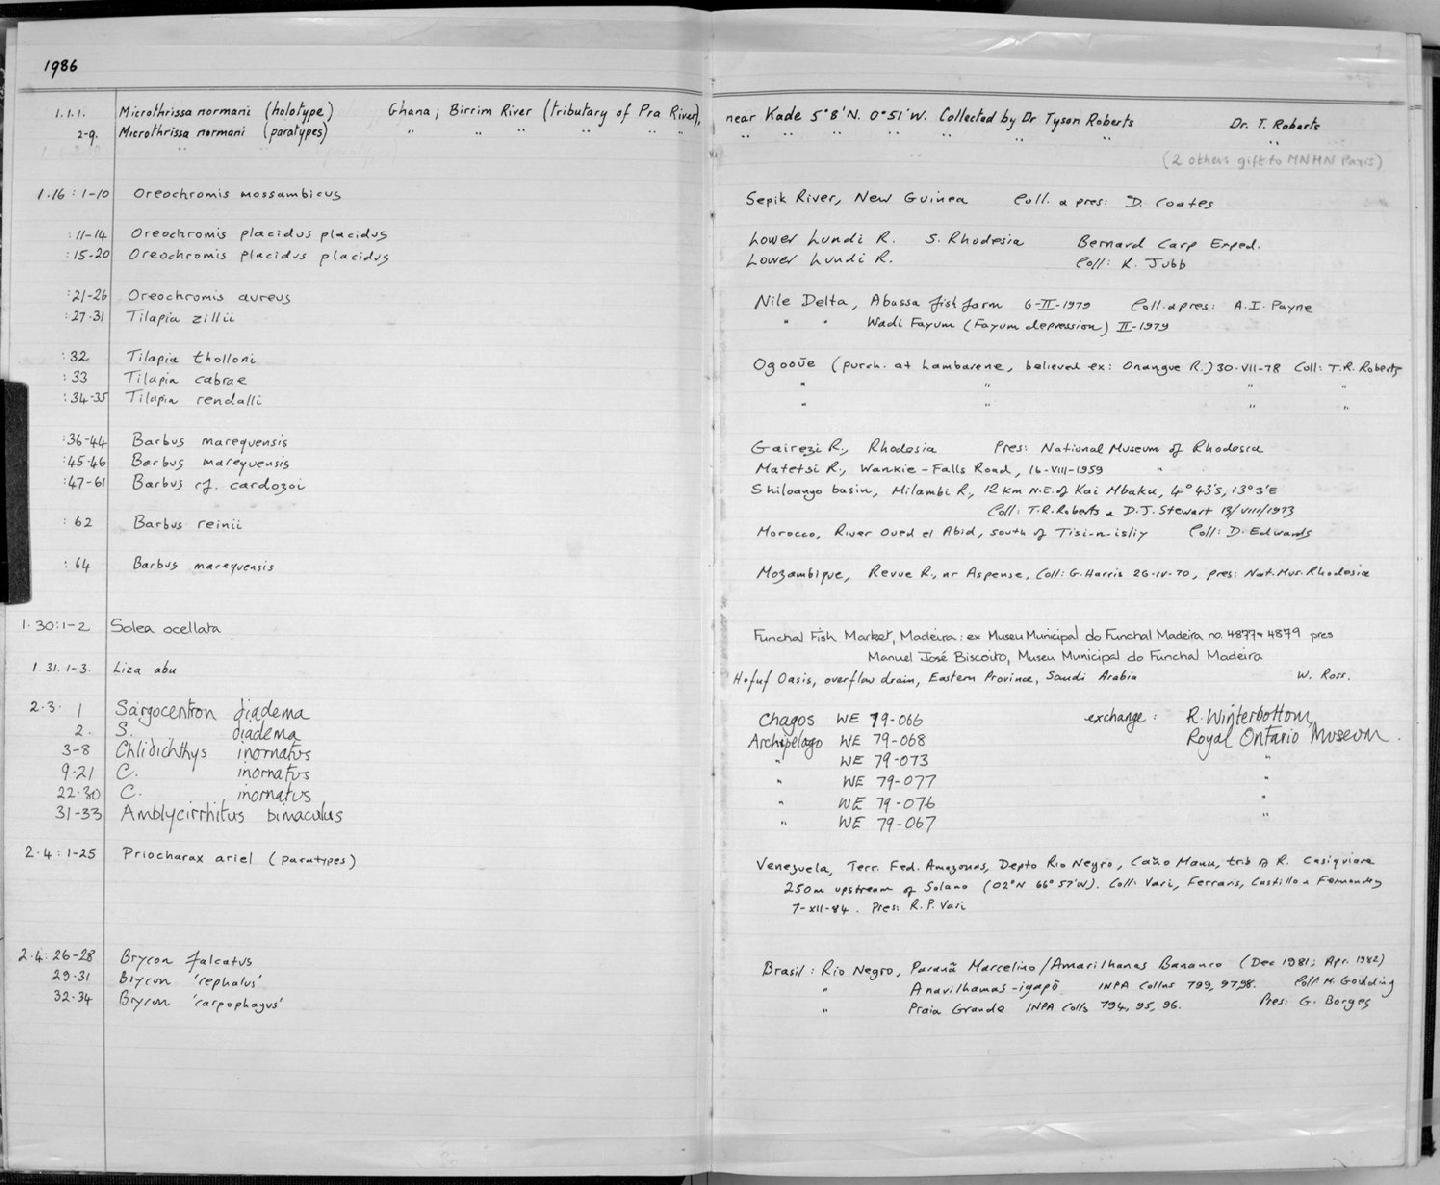 1986
1.1.1. Microthrissa normani (holotype) Ghana; Birrim River (tributary of Pra River), near Kade 5°8'N. 0°51'W. Collected by Dr Tyson Roberts Dr. T. Roberts
2-9. Microthrissa normani (paratypes) " " " " " " " " " " " " "
(2 others gift to MNHN Paris)
1.16:1-10 Oreochromis mossambicus Sepik River, New Guinea Coll. & pres: D. Coates
:11-14 Oreochromis placidus placidus Lower Lundi R. S. Rhodesia Bernard Carp Exped.
:15-20 Oreochromis placidus placidus Lower Lundi R. Coll: K. Jubb
:21-26 Oreochromis aureus Nile Delta, Abassa fish farm 6-II-1979 Coll. & pres: A.I. Payne
:27-31 Tilapia zillii " " Wadi Fayum (Fayum depression) II-1979
:32 Tilapia tholloni Ogooūe (purch. at Lambarene, believed ex: Onangue R.) 30-VII-78 Coll: T.R. Roberts
:33 Tilapia cabrae " " " "
:34-35 Tilapia rendalli " " " "
:36-44 Barbus marequensis Gairezi R., Rhodesia Pres: National Museum of Rhodesia
:45-46 Barbus marequensis Matetsi R., Wankie-Falls Road, 16-VIII-1959 "
:47-61 Barbus cf. cardozoi Shiloango basin, Milambi R., 12 km N.E. of Kai Mbaku, 4°43'S, 13°3'E
Coll: T.R. Roberts & D.J. Stewart 13/VIII/1973
:62 Barbus reinii Morocco, River Oued el Abid, south of Tisi-n-isliy Coll: D. Edwards
:64 Barbus marequensis Mozambique, Revue R., nr Aspense, Coll: G. Harris 26-IV-70, pres: Nat. Mus. Rhodesia
1.30:1-2 Solea ocellata Funchal Fish Market, Madeira: ex Museu Municipal do Funchal Madeira no. 4877 & 4879 pres
Manuel José Biscoito, Museu Municipal do Funchal Madeira
1.31.1-3. Liza abu Hofuf Oasis, overflow drain, Eastern Province, Saudi Arabia W. Ross.
2.3. 1 Sargocentron diadema Chagos WE 79-066 exchange: R. Winterbottom,
2. S. diadema Archipelago WE 79-068 Royal Ontario Museum.
3-8 Chlidichthys inornatus " WE 79-073 "
9-21 C. inornatus " WE 79-077 "
22-30 C. inornatus " WE 79-076 "
31-33 Amblycirrhitus bimaculus " WE 79-067 "
2.4:1-25 Priocharax ariel (paratypes) Venezuela, Terr. Fed. Amazonas, Depto Rio Negro, Caño Manu, trib of R. Casiquiare
250m upstream of Solano (02°N 66°57'W). Coll: Vari, Ferraris, Castillo & Fernandez
7-XII-84. Pres: R.P. Vari
2.4:26-28 Brycon falcatus Brasil: Rio Negro, Paranã Marcelino/Amarilhanas Bananco (Dec 1981; Apr. 1982)
29-31 Brycon 'cephalus' " Anavilhamas-igapō INPA Collns 799, 97,98. Coll: M. Goulding
32-34 Brycon 'carpophagus' " Praia Grande INPA Colls 794, 95, 96. Pres: G. Borges